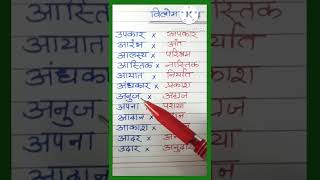 विलोम
उपकार × अपकार
आरंभ × अंत
आलस्य × परिश्रम
आस्तिक × नास्तिक
आयात × निर्यात
अंधकार × प्रकाश
अनुज × अग्रज
अपना पराया
आदान ×
आकाश ×
आदर ×
उदार × अनुदार